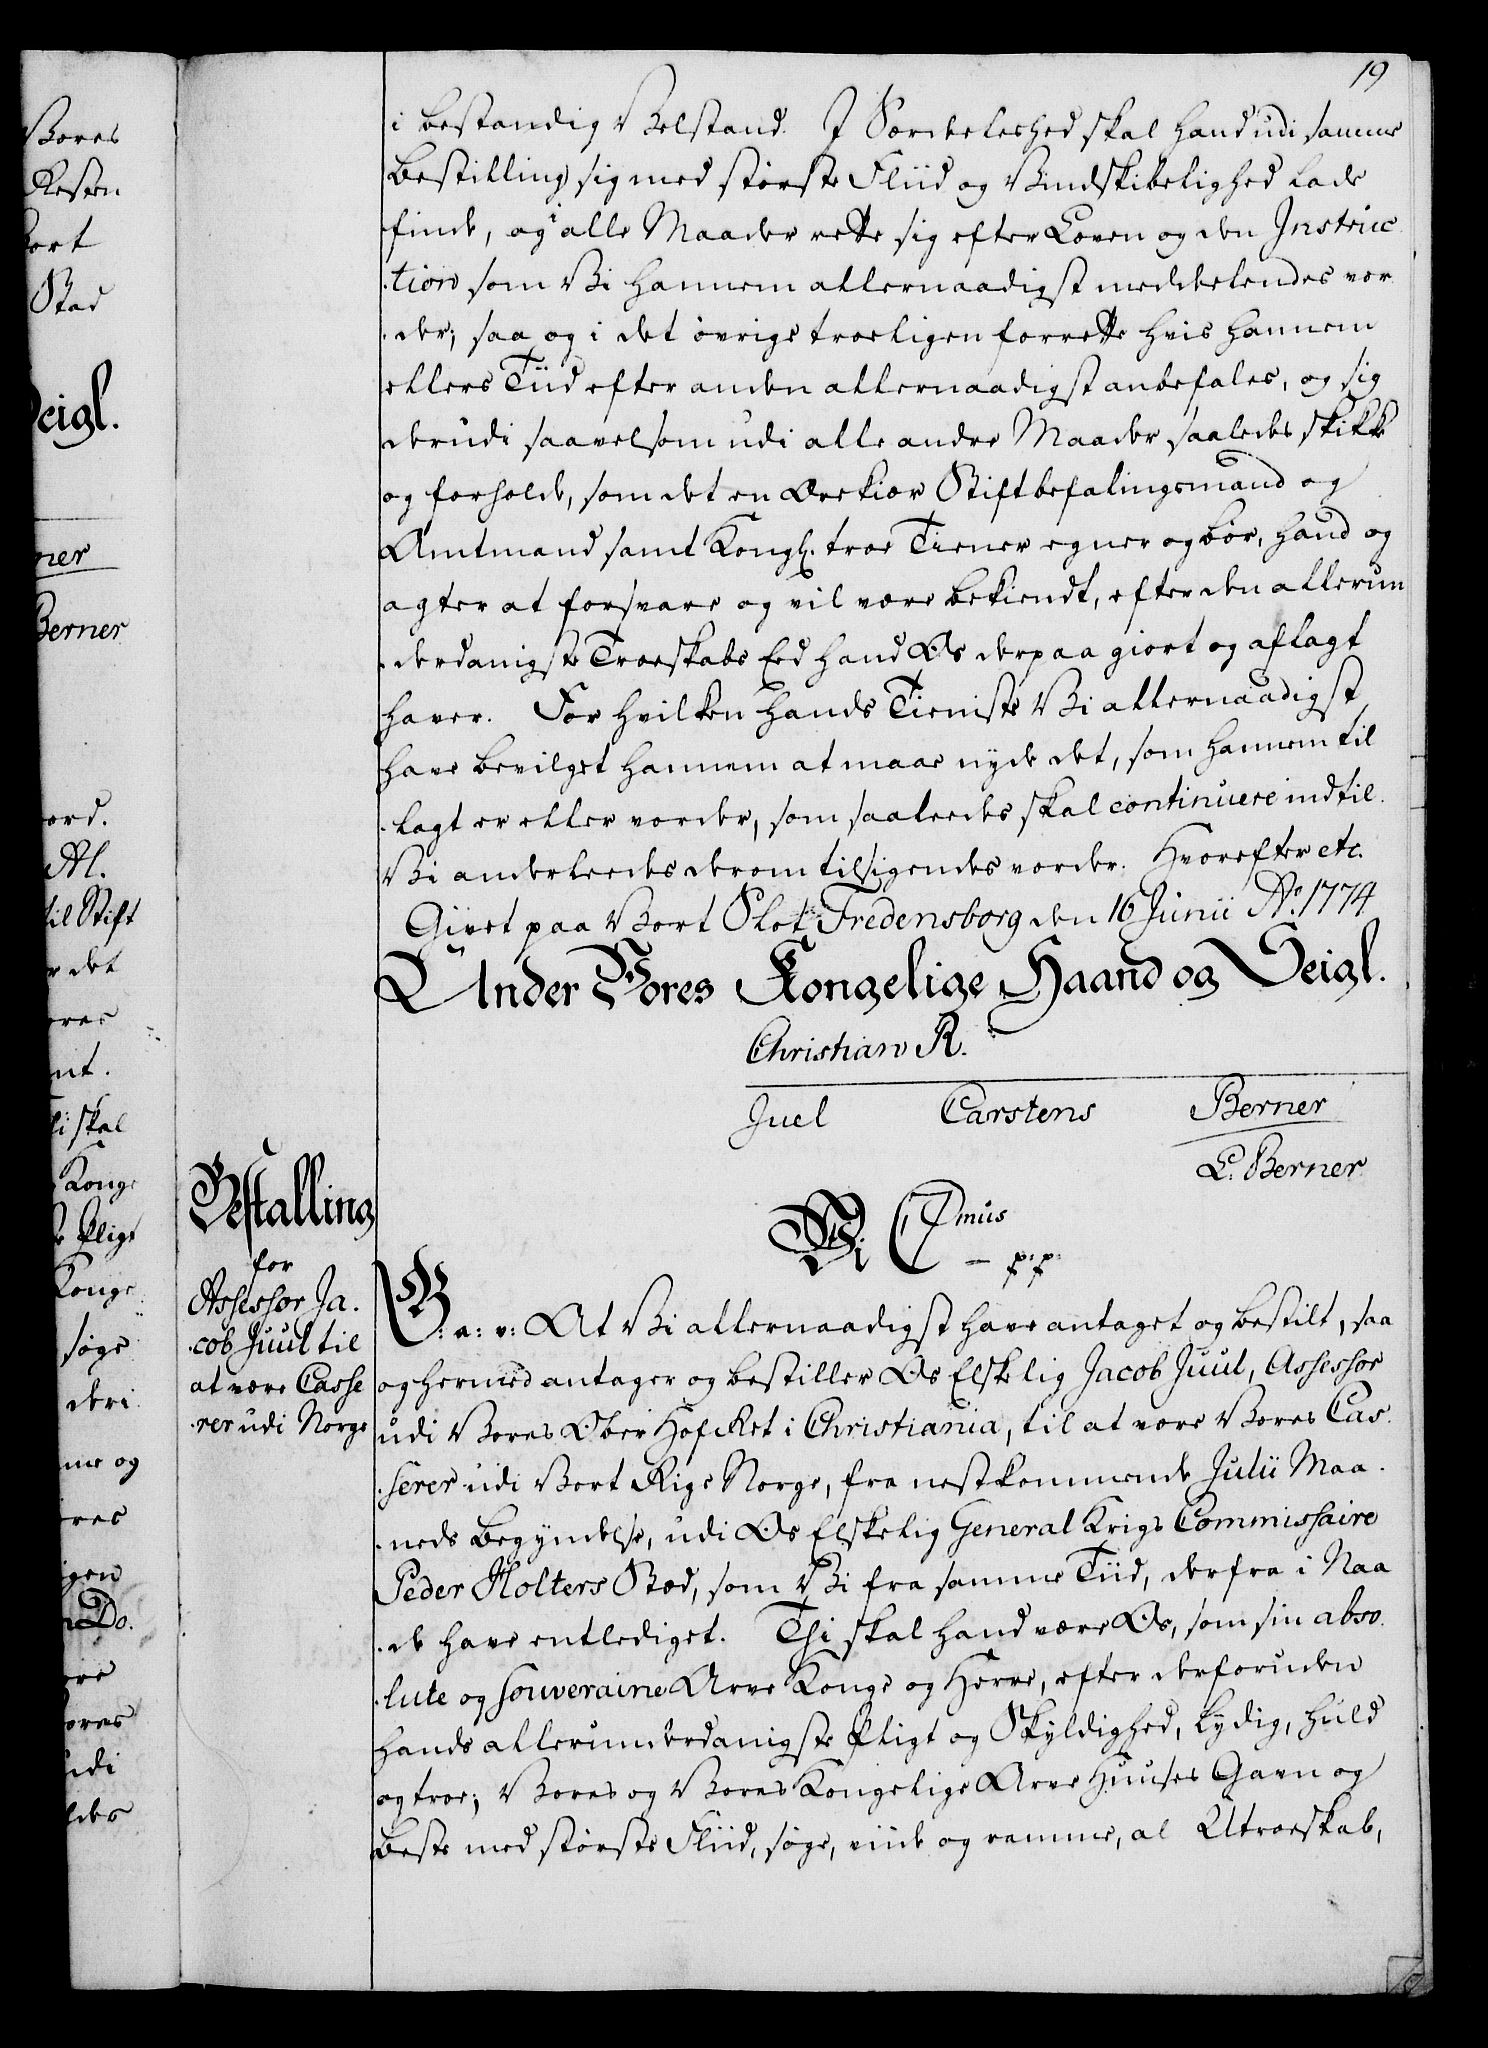 19
i bestandig Velstand. I Særdeleshed skal hand udi samme
Bestilling sig med største Fliid og Vindskibelighed lade
finde, og i alle Maader rette sig efter Loven og den Instruc
tion som Vi hannem allernaadigst meddeelendes vor
der; saa og i det øvrige troeligen forrette hvis hannem
ellers Tiid efter anden allernaadigst anbefales, og sig
derudi saavelsom udi alle andre Maader saaledes skikke
og forholde, som det en ærekiær Stiftbefalingsmand og
Amtmand samt Kongl. troe Tiener egner og bør, hand og
agter at forsvare og vil være bekiendt, efter den allerun
derdanigste Troeskabs Eed hand Os derpaa giort og aflagt
haver. For hvilken hands Tieniste Vi allernaadigst
have bevilget hannem at maae nyde det, som hannem til
lagt er eller vorder, som saaleedes skal continuere indtil
Vi anderleedes derom tilsigendes vorder. Hvorefter etc.
Givet paa Vort Slot Fredensborg den 16 Junii Ao. 1774
Under Vores Kongelige Haand og Seigl.
Christian R.
Juel Carstens Berner
L. Berner
Bestalling
for
Assessor Ja.
cob Juul til
at være Casse
rer udi Norge
Vi C 7mus
— p:p:
G: a: v: At Vi allernaadigst have antaget og bestilt, saa
og hermed antager og bestiller Os Elskelig Jacob Juul, Assessor
udi Vores Ober Hof Ret i Christiania, til at være Vores Cas
serer udi Vort Rige Norge, fra nestkommende Julii Maa
neds Begyndelse, udi Os Elskelig General Krigs Commissaire
Peder Holters Sted, som Vi fra samme Tiid, derfra i Naa
de have entlediget. Thi skal hand være Os, som sin abso
lute og souveraine Arve Konge og Herre, efter derforuden
hands allerunderdanigste Pligt og Skyldighed, lydig, huld
og troe; Vores og Vores Kongelige Arve Huuses Gavn og
Beste med største Fliid, søge, viide og ramme, al Utroeskab,